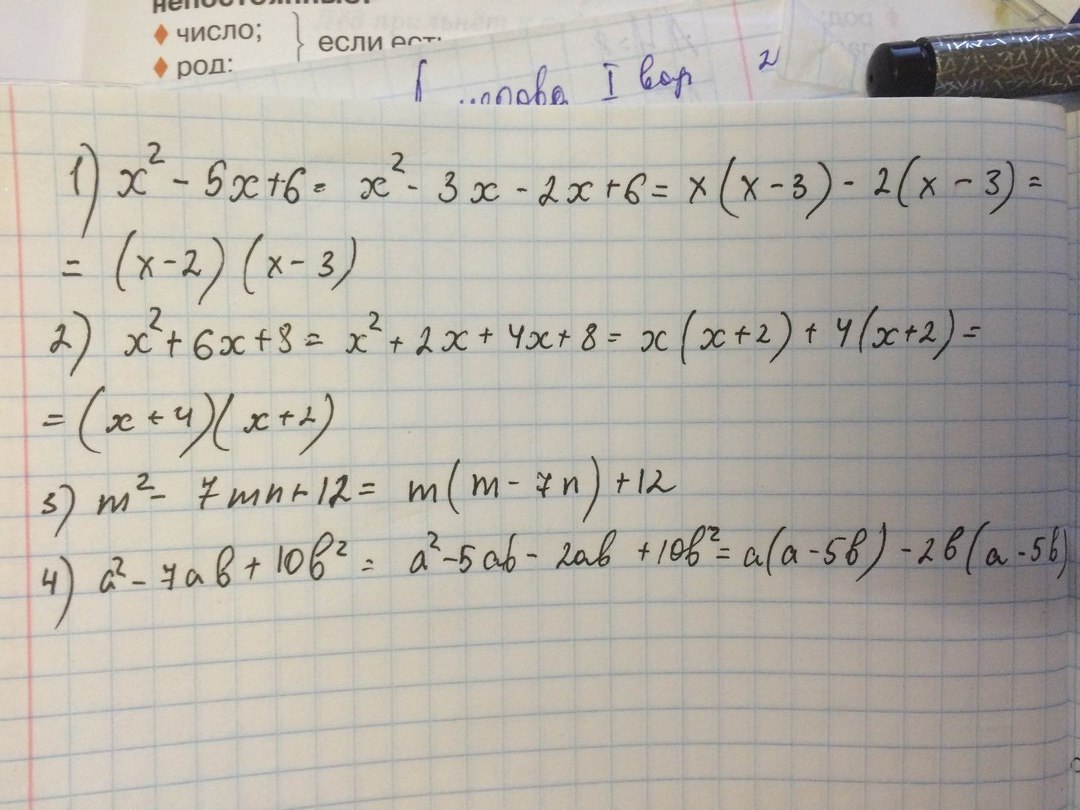 число;
род:
если ест
I вар
1) x² - 5x+6 = x² - 3x - 2x+6 = x(x-3) - 2(x-3) =
= (x-2)(x-3)
2) x²+6x+8 = x²+2x+4x+8 = x(x+2)+4(x+2) =
= (x+4)(x+2)
3) m² - 7mn+12 = m(m-7n)+12
4) a² - 7ab+10b² = a² - 5ab - 2ab +10b² = a(a-5b) - 2b(a-5b)